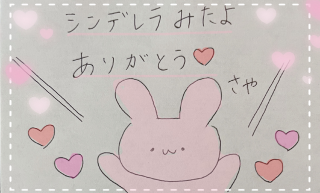 シンデレラみたよ
ありがとう♡
さや